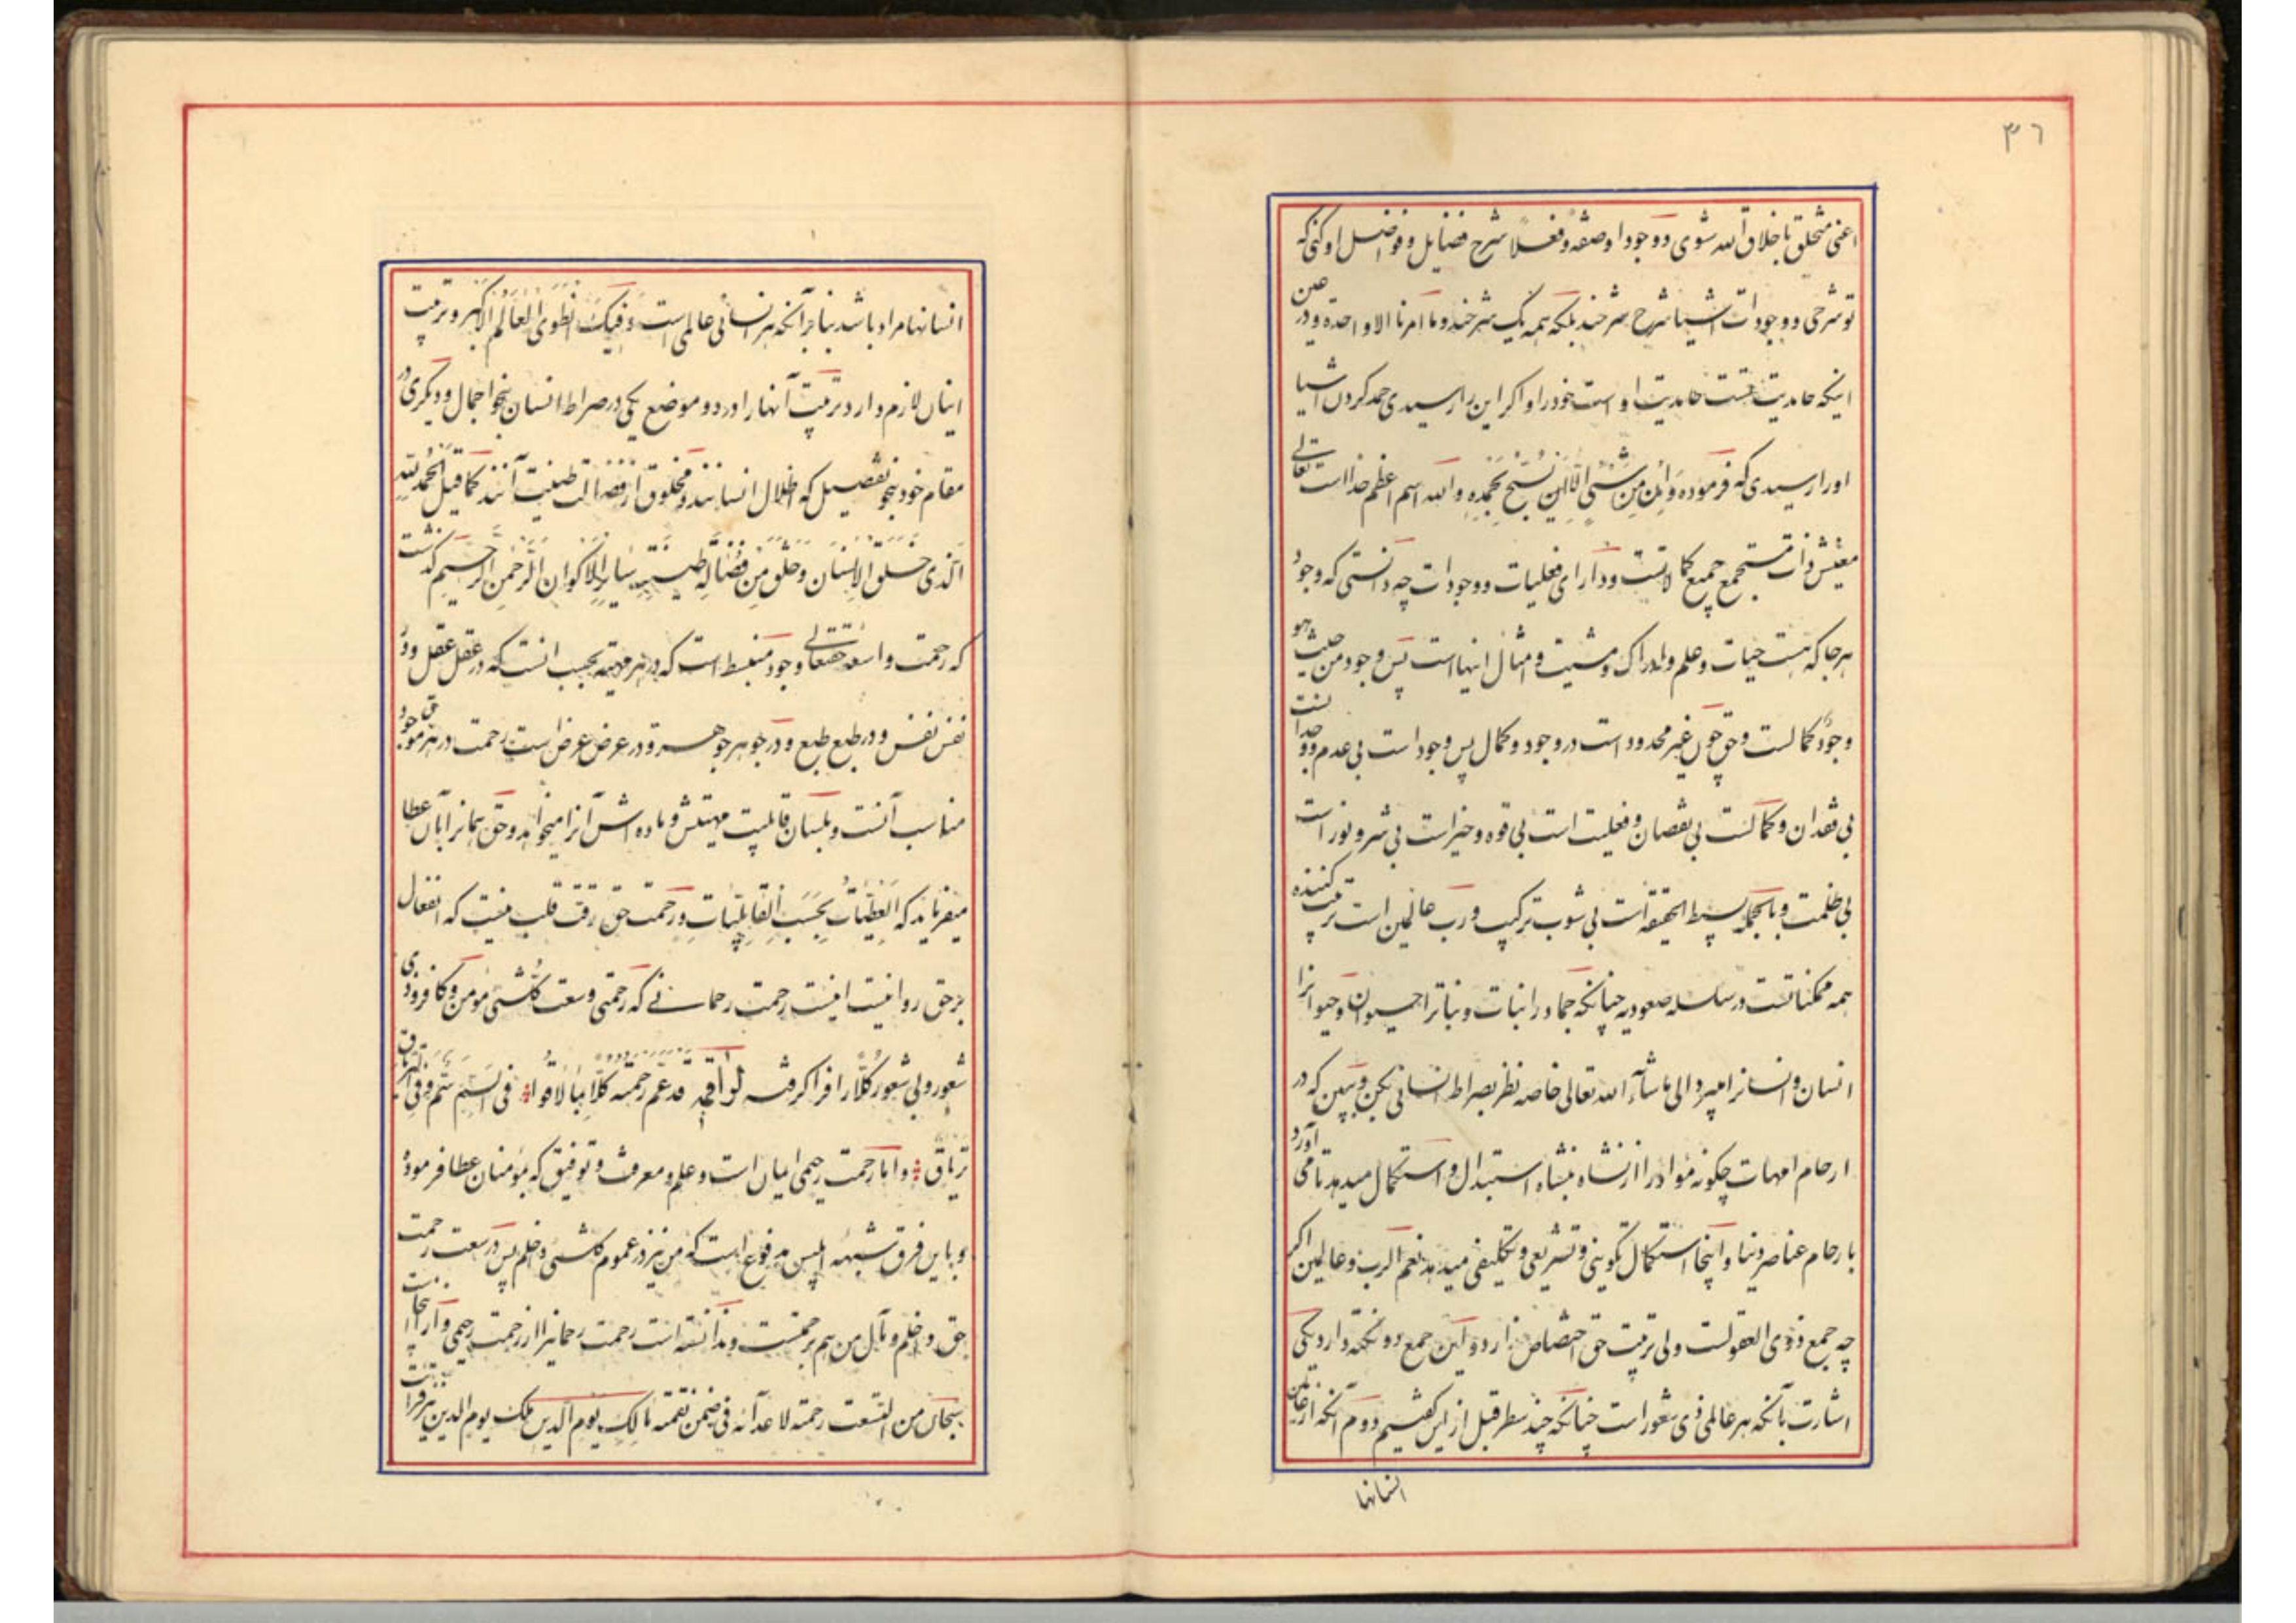 ۳٦
اعنی متخلق باخلاق الله شوی و وجودا وصفة وفعلا شرح فضایل و فواضل او کنی که
تو شرحی و وجودات اشیا شرح شرحند بلکه همه یک شرحند و ما امرنا الا واحده و در عین
اینکه حامدیت تست حامدیت او است خود را و اگر این را رسیدی حمد کردن اشیا
او را رسیدی که فرموده وَاِن مِن شَیْیءٍ اِلّا یُسَبِّحُ بِحَمْدِهِ و الله اسم اعظم خدا است تعالی
معنیش ذات مستجمع جمیع کمالاتست و دارای فعلیات و وجودات چه دانستی که وجود
هر جا که هست حیات و علم و ادراک و مشیت و امثال اینها است پس وجود من حیث هو
وجود کمالست و حق چون غیر محدود است در وجود و کمال پس وجود است بی عدم و وجدانست
بی فقدان و کمالست بی نقصان و فعلیت است بی قوه و خیر است بی شر و نور است
بی ظلمت و بالجمله بسیط الحقیقه است بی شوب ترکیب و رب عالمین است تربیت کننده
همه ممکناتست در سلسله صعودیه چنانکه جماد را نبات و نبات را حیوان و حیوانرا
انسان و انسانرا میبرد الی ماشآء الله تعالی خاصه نظر بصراط انسانی بکن و ببین که در
ارحام امهات چگونه مواد را از نشاه بنشاه استبدال و استکمال میدهد تا می آورد
بارحام عناصر دنیا و اینجا استکمال تکوینی و تشریعی و تکلیفی میدهد نعم الرب و عالمین اگر
چه جمع ذوی العقولست ولی تربیت حق اختصاص ندارد و این جمع دو نکته دارد یکی
اشارت بآنکه هر عالمی ذی شعور است چنانکه چند سطر قبل از این گفتیم دوم آنکه از عالمین
انسانها
انسانها مراد باشد بنابر آنکه هر انسانی عالمی است وَفیکَ انْطَوَی العَالَمُ الاَکْبَر و تربیت
اینان لازم دارد تربیت آنها را در دو موضع یکی در صراط انسان بنحو اجمال و دیگری در
مقام خود بنحو تفصیل که اظلال انسانند و مخلوق از فضالت طینت آنند کما قیل اَلحَمْدُ لِلّهِ
الَّذی خَلَقَ الاِنْسَان وَخَلَقَ مِن فُضَالَةِ طینَتِهِ سَایِرَ الاَکْوان اَلرَّحْمٰنِ الرَّحیمِ گذشت
که رحمت واسعه حقتعالی وجود منبسط است که در هر مرتبه بحسب انست که در عقل عقل و در
نفس نفس و در طبع طبع و در جوهر جوهر و در عرض عرض است رحمت در هر موجود
مناسب آنست و بلسان قابلیت مهیتش و ماده اش آنرا میخواهد و حق همانرا بآن عطا
میفرماید که اَلعَطِیّاتُ بِحَسَبِ القَابِلِیَّاتِ و رحمت حق رقت قلب نیست که انفعال
بر حق روا نیست اینست رحمت رحمانی که رحمتی وسعت کُلّ شیئ مومن و کافر و ذی
شعور و بی شعور کلا را فرا گرفته لواقمه قد عَمَّ رَحمَتُهُ کُلّاً بِالاَفُواد فی السَمِّ سَمٌّ وَفِی التِّریاق
تریاق و اما رحمت رحیمی ایمان است و علم و معرفت و توفیق که بمؤمنان عطا فرموده
و باین فرق شبهه ابلیس مدفوع است که من نیز در عموم کلشیئ داخلم پس در سعت رحمت
حق داخلم و مآل من هم برحمتست و ندانسته است رحمت رحمانیرا از رحمت رحیمی و از اینجاست
سبحان من اتسعت رحمته لاعدآئه فی ضمن نقمته مَالِكِ یَوْمِ الدّینِ ملک یوم الدین نیز قرائتست